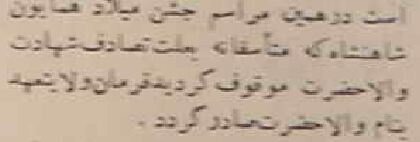 است درهمین مراسم جشن میلاد همایون
شاهنشاه که متأسفانه بعلت تصادف شهادت
والاحضرت موقوف گردید فرمان ولایتعهد
بنام والاحضرت صادر گردد .